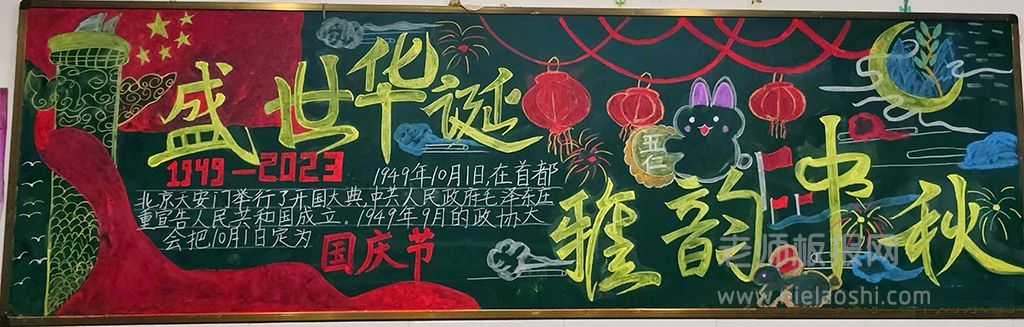 盛世华诞
1949—2023
1949年10月1日,在首都
北京天安门举行了开国大典,中共人民政府毛泽东庄
重宣告人民共和国成立。1949年9月的政协大
会把10月1日定为
国庆节
五仁
雅韵中秋
老师板报网
www.pielaoshi.com